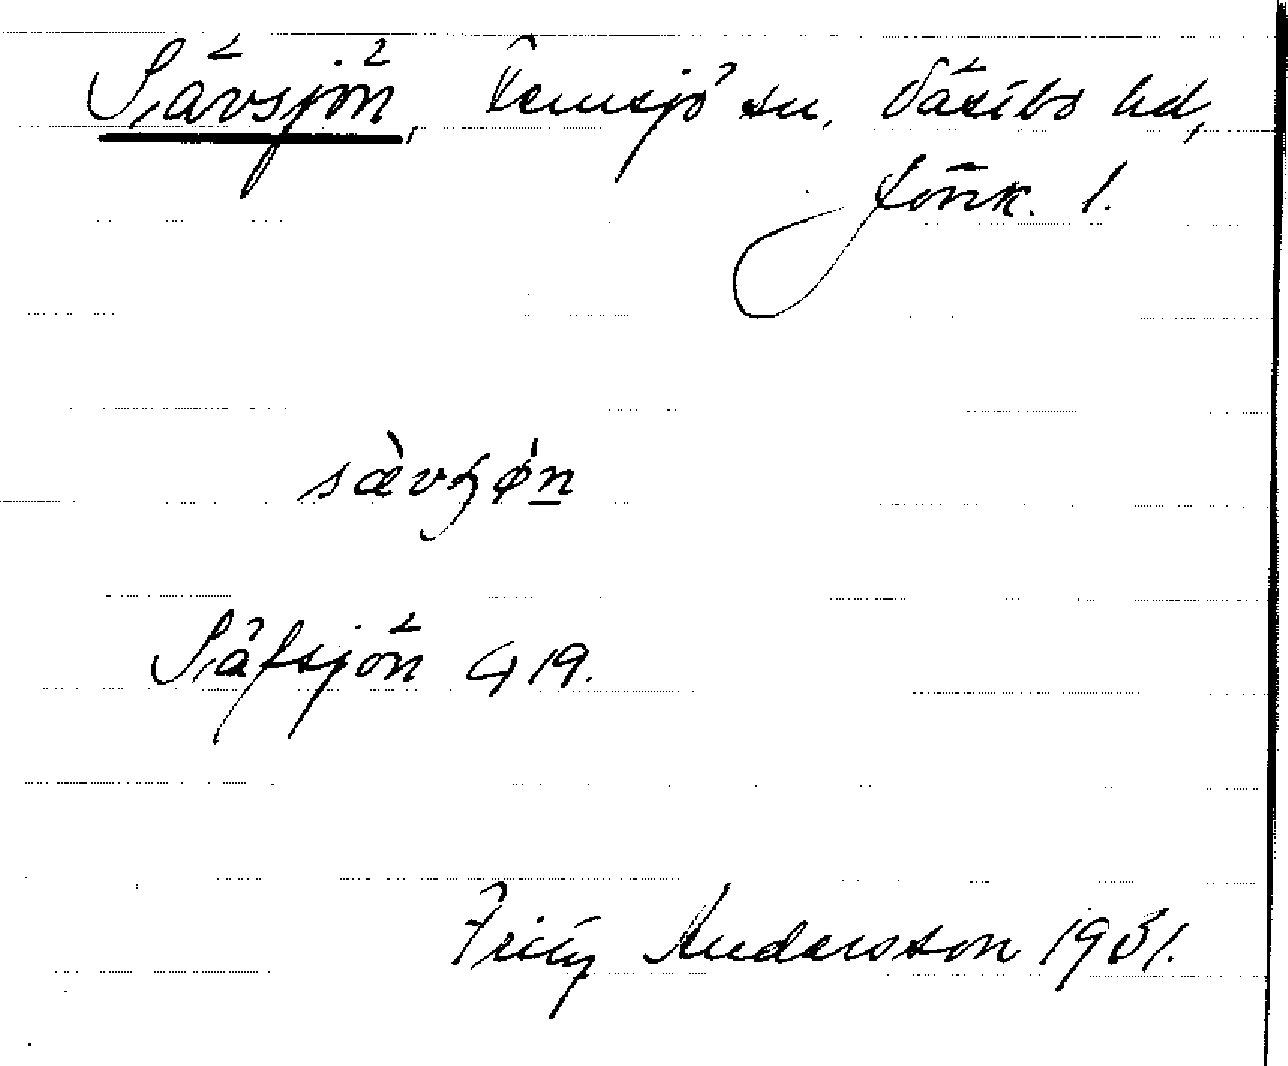 Sävsjön, Femsjö sn, Västbo hd,
Jönk. l.
sæ̀vʒø̀n
Säfsjön G 19.
Fritz Andersson 1931.